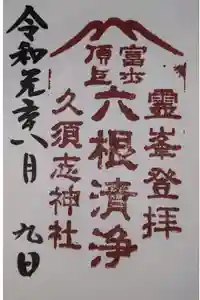 霊峯登拝
富士
頂上
六根清浄
久須志神社
令和元年八月
九日